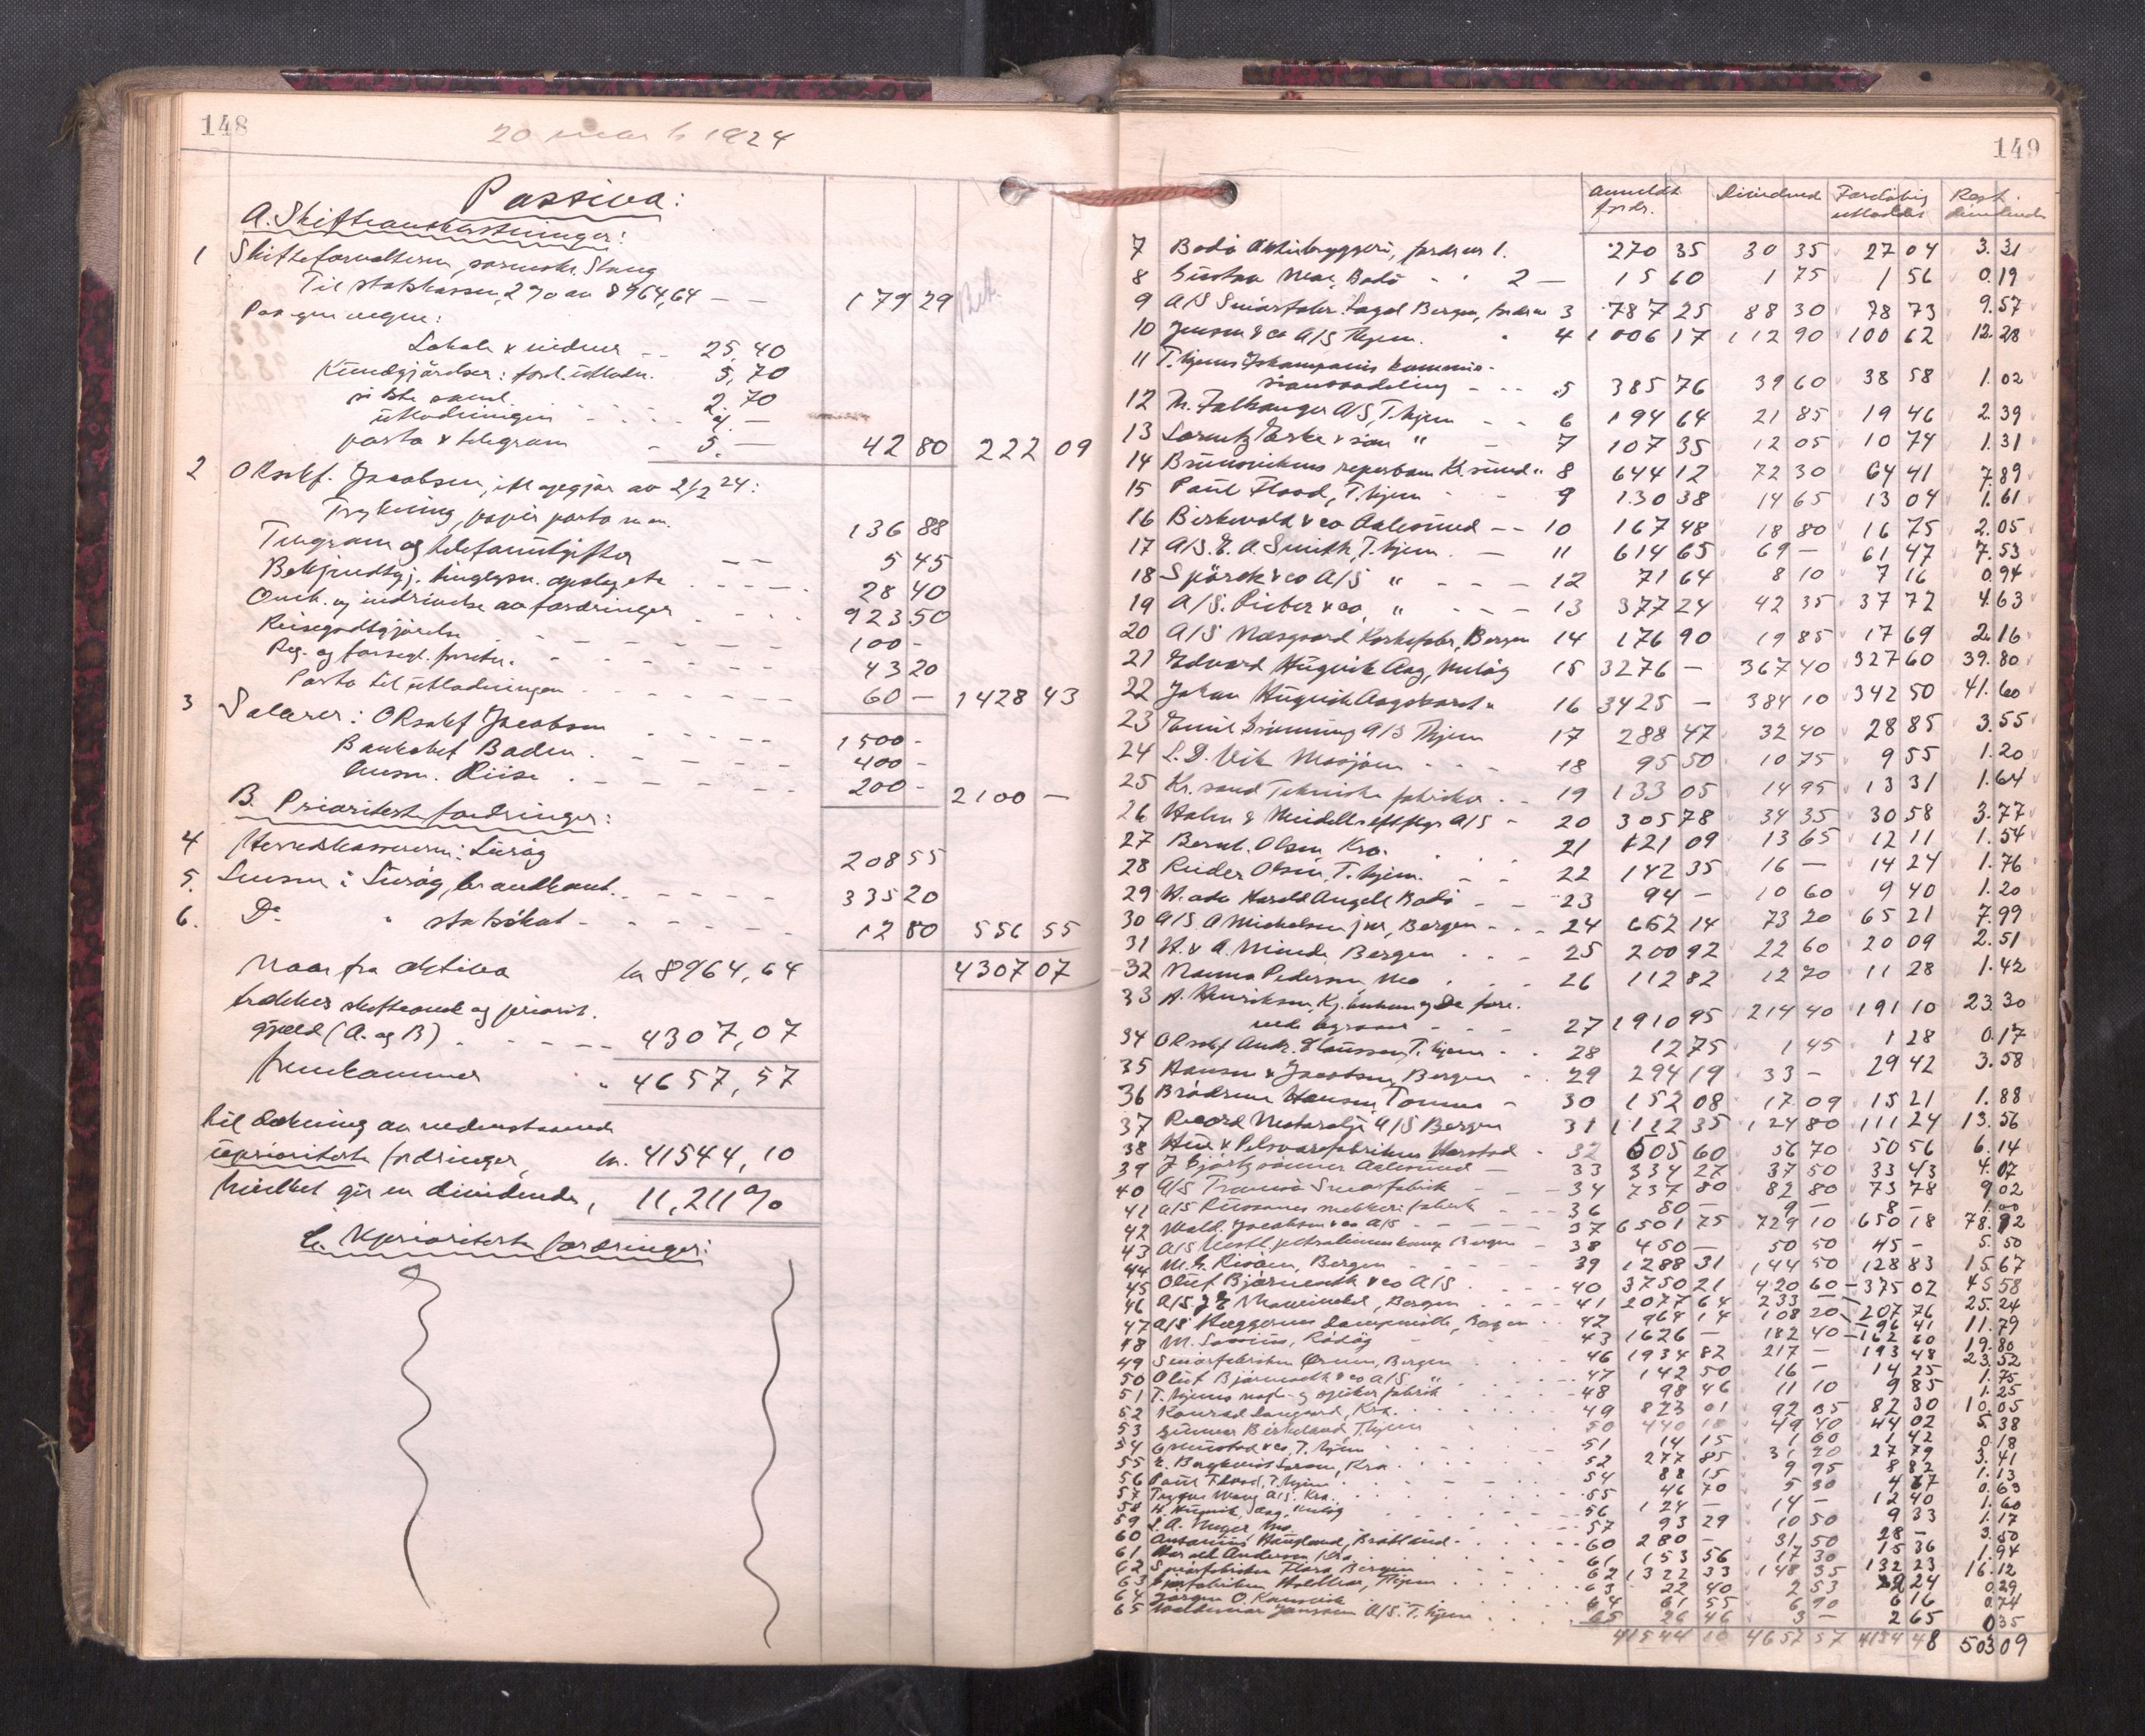 148
20 mars 1924
Passiva:
A. Skifteomkostninger:
1 Skifteforvalteren, sorenskr. Stang
Til statskassen, 2 % av 8964,64 — — 179 29
Paa egne vegne:
Lokale & vidner — 25,40
Kundgjörelser: forel. utlodn. 5,70
siste saml. 2,70
utlodningen 4 —
porto & telegram — 5. — 42 80 222 09
2 ORsakf. Jacobsen, iflg opgjör av 21/2 24:
Trykning, papir porto m. m. 136 88
Telegram og telefonutgifter — — 5 45
Bekjendtgj. tinglysn. opslag etc 28 40
Omk. og inddrivelse av fordringer 923 50
Reisegodtgjörelse 100 -
Reg. og forsegl. forretn. 43 20
Porto til utlodningen 60 — 1428 43
3 Salærer: ORsakf Jacobsen 1500 -
Bankchef Baden 400 -
lensm. Riise 200 - 2100 —
B. Prioriterte fordringer:
4 Herredskassereren i Luröy 208 55
5. Lensm i Luröy, brandkont. 335 20
6. Do " statsskat - 12 80 556 55
Naar fra aktiva kr 8964,64 4307 07
trækkes skifteomk og priorit.
gjæld (A. og B) 4307,07
fremkommer " 4657,57
til dækning av nedenstaaende
uprioriterte fordringer, kr. 41544,10
hvilket gir en dividende, 11,211 %
C. Uprioriterte fordringer:
149
Anmeldt fordr. Dividend Foreløbig utloddet Rest. dividende
7 Bodö Aktiebryggeri, fordran 1. 270 35 30 35 27 04 3.31
8 Gustav Moe, Bodö - " 2 — 15 60 1 75 1 56 0.19
9 A/S Smörfabr. Fagal Bergen, fordran 3 787 25 88 30 78 73 9.57
10 Jenssen & co A/S Thjem. " 4 1006 17 112 90 100 62 12.28
11 T.hjems Iskompanis kommis-
sionsavdeling - - - 5 385 76 39 60 38 58 1.02
12 N. Falkanger A/S, T.hjem - - 6 194 64 21 85 19 46 2.39
13 Lorentz Erbe & søn " - 7 107 35 12 05 10 74 1.31
14 Brunsvikens reperban Kr.sund " 8 644 12 72 30 64 41 7.89
15 Paul Flood, T.hjem - - 9 130 38 14 65 13 04 1.61
16 Birkevold & co Aalesund -- 10 167 48 18 80 16 75 2.05
17 A/S. E. A. Smith, T.hjem. — 11 614 65 69 — 61 47 7.53
18 Spörck & co A/S " - - - 12 71 64 8 10 7 16 0.94
19 A/S. Lieber & co, " - - - 13 377 24 42 35 37 72 4.63
20 A/S Næsgaard Korkefabr, Bergen 14 176 90 19 85 17 69 2.16
21 Edvard Hugvik Aag, Meløy 15 3276 — 367 40 327 60 39.80
22 Johan Hugvik Aagskaret " 16 3425 — 384 10 342 50 41.60
23 Emil Grönning A/S Thjem 17 288 47 32 40 28 85 3.55
24 L. D. Vik Mosjøen - - - 18 95 50 10 75 9 55 1.20
25 Kr. sand Tekniske fabriker - - 19 133 05 14 95 13 31 1.64
26 Holm & Meidells eftflgr A/S - 20 305 78 34 35 30 58 3.77
27 Bernh. Olsen Kra. 21 121 09 13 65 12 11 1.54
28 Reider Olsen, T.hjem. - - 22 142 35 16 — 14 24 1.76
29 H. adv Harald Angell Bodö - - 23 94 — 10 60 9 40 1.20
30 A/S A. Michelsen jnr, Bergen - - - 24 652 14 73 20 65 21 7.99
31 H. & A. Minde Bergen - - - 25 200 92 22 60 20 09 2.51
32 Nanna Pedersen, Mo - - - 26 112 82 12 70 11 28 1.42
33 A. Henriksen,
27 1910 95 214 40 191 10 23.30
34 ORsakf Andr. Claussen, T.hjem - - 28 12 75 1 45 1 28 0.17
35 Hansen & Jacobsen, Bergen - 29 294 19 33 — 29 42 3.58
36 Brödrene Hansen, - 30 152 08 17 09 15 21 1.88
37 Record Motorolje A/S Bergen 31 1112 35 124 80 111 24 13.56
38 Hue & Pelsvarefabriken Harstad - 32 505 60 56 70 50 56 6.14
39 J. Aalesund — 33 334 27 37 50 33 43 4.07
40 A/S Tromsö Smørfabrik - - 34 737 80 82 80 73 78 9 02
41 A/S - - 36 80 — 9 — 8 — 1.00
42 Wald. Jacobsen & co A/S - - - 37 6501 75 729 10 650 18 78.92
43 A/S Vestl. petroleumskomp Bergen - 38 450 — 50 50 45 — 5.50
44 M. G. Bergen 39 1288 31 144 50 128 83 15 67
45 Oluf Björnevik & co A/S - - - 40 3750 21 420 60 375 02 45 58
46 A/S. Bergen - - - 41 2077 64 233 — 207 76 25.24
47 A/S Vaggerens Dampmölle, Bergen - 42 964 14 108 20 96 41 11.79
48 M. Rödöy 43 1626 — 182 40 162 60 19.80
49 Smörfabriken Ørnen, Bergen 46 1934 82 217 — 193 48 23.52
50 Oluf Björnevik & co A/S " 47 142 50 16 — 14 25 1.75
51 T.hjems fabrik 48 98 46 11 10 9 85 1.25
52 Konrad Langaard, Kra. 49 823 01 92 35 82 30 10.05
53 Gunnar Birkeland, T.hjem 50 440 18 49 40 44 02 5.38
54 & co, T.hjem 51 14 15 1 60 1 42 0.18
55 Kra 52 277 85 31 20 27 79 3.41
56 Paul Flood, T.hjem 54 88 15 9 95 8 82 1.13
57 Trygve Wang A/S. Kra. 55 46 70 5 30 4 67 0.63
58 H. Hugvik, Aag, Meløy 56 124 — 14 — 12 40 1.60
59 L. A. Meyer Mo 57 93 29 10 50 9 33 1.17
60 Antonius Haugland, Bratland 60 280 — 31 50 28 — 3.50
61 Harald Andersen, Kra 61 153 56 17 30 15 36 1.94
62 Smörfabriken Flora Bergen 62 1322 33 148 35 132 23 16.12
63 T.hjem 63 22 40 2 53 2 24 0.29
64 Jørgen O. 64 61 55 6 90 6 16 0.74
65 Waldemar Janssen A/S. T.hjem 65 26 46 3 — 2 65 0 35
41544 10 4657 57 4154 48 503 09